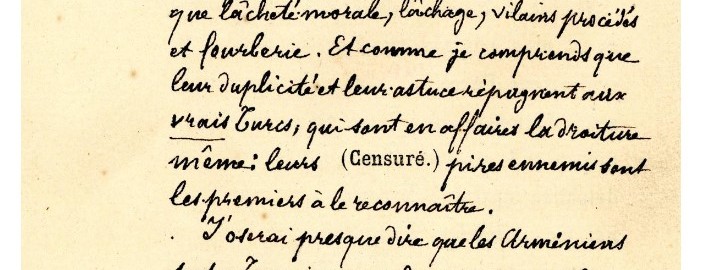 que lâcheté morale, lâchage, vilains procédés
et fourberie. Et comme je comprends que
leur duplicité et leur astuce répugnent aux
vrais Turcs, qui sont en affaires la droiture
même: leurs (Censuré.) pires ennemis sont
les premiers à le reconnaître.
J'oserai presque dire que les Arméniens